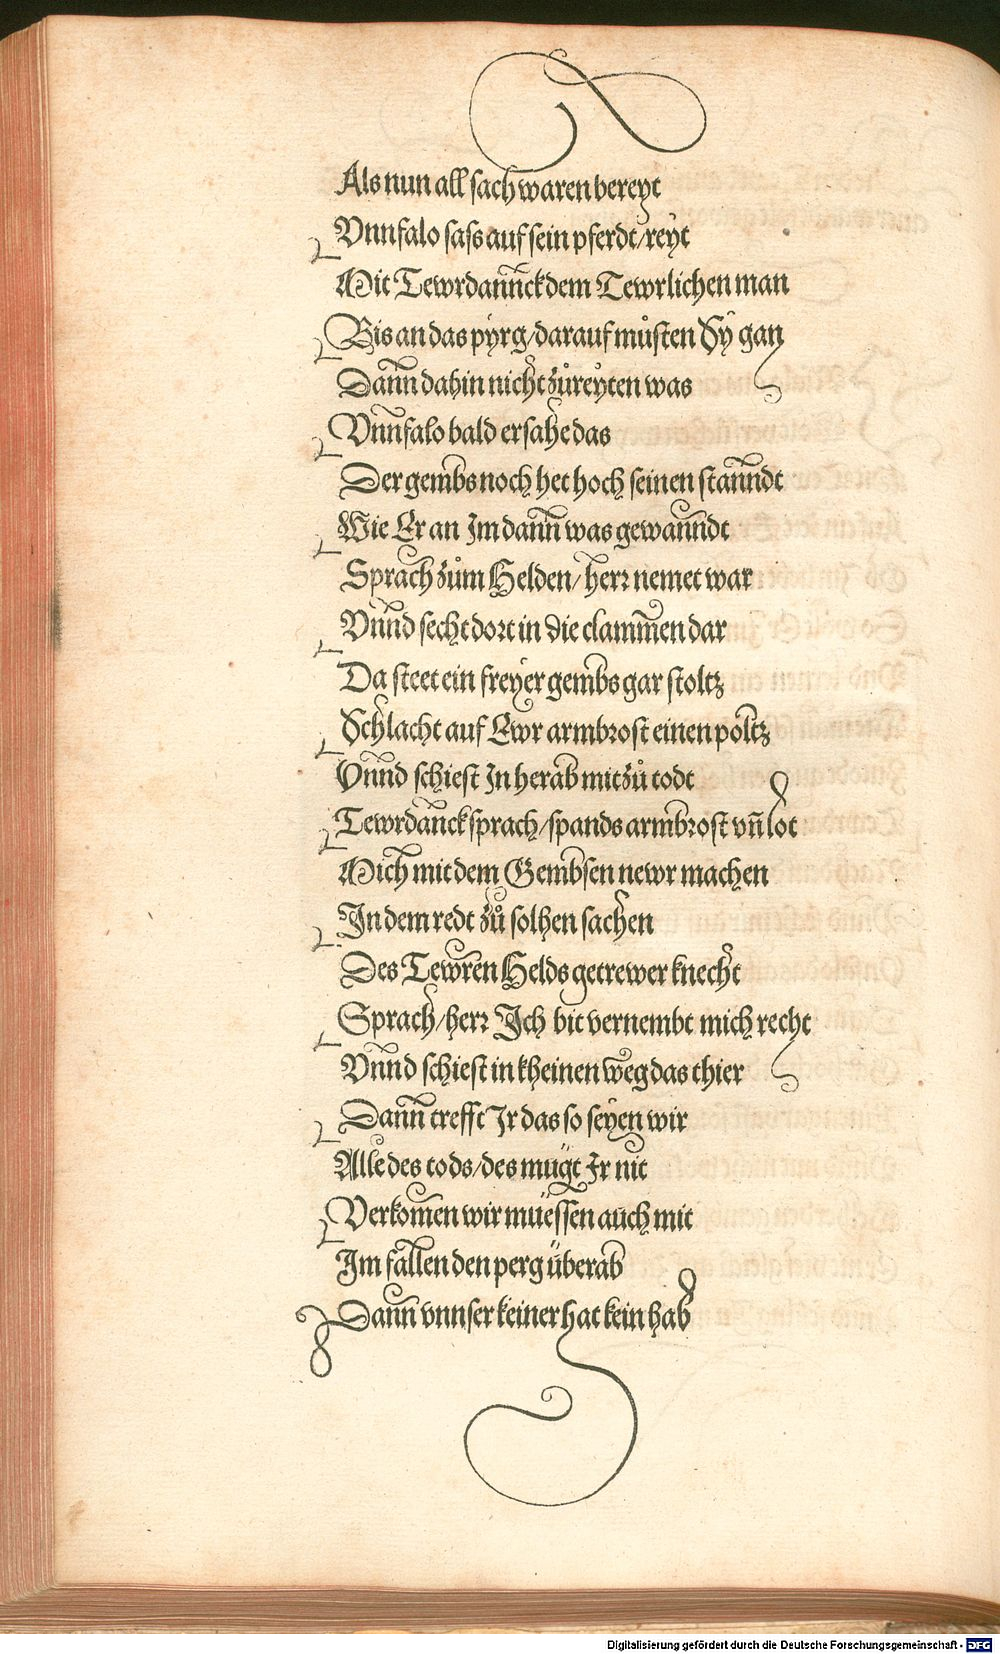 Als nun all sach waren bereyt
Vnnfalo sass auf sein pferdt/reyt
Mit Tewrdannckh dem Tewrlichen man
Bis an das pÿrg/darauf můsten Sÿ gan
Dann dahin nicht zůreyten was
Vnnfalo bald ersahe das
Der gembs noch het hoch seinen stanndt
Wie Er an Im dann was gewanndt
Sprach zům Helden/herr nemet war
Vnnd secht dort in die clammen dar
Da steet ein freyer gembs gar stoltz
Schlacht auf Ewr armbrost einen poltz
Vnnd schiest In herab mit zů todt
Tewrdannck sprach/spands armbrost vñ lot
Mich mit dem Gembsen newr machen
In dem redt zů solhen sachen
Des Tewren Helds getrewer knecht
Sprach/herr Ich bit vernembt mich recht
Vnnd schiest in kheinen weg das thier
Dann trefft Ir das so seyen wir
Alle des tods/des mügt Ir nit
Verkomen wir müessen auch mit
Im fallen den perg überab
Dann vnnser keiner hat kein hab
Digitalisierung gefördert durch die Deutsche Forschungsgemeinschaft - DFG